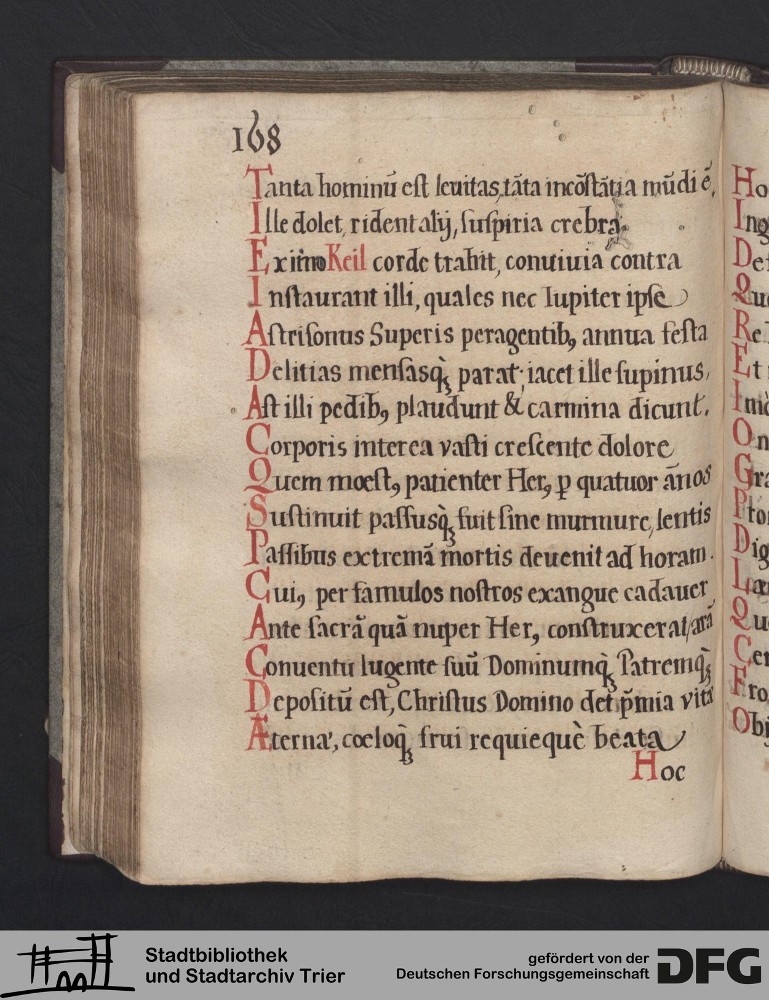 168
Tanta hominū est leuitas, tāta incōstātia mūdi ē,
Ille dolet, rident alij, suspiria crebra
Ex imo Keil corde trahit, conuiuia contra
Instaurant illi, quales nec Iupiter ipse
Astrisonus Superis peragentibꝯ annua festa
Delitias mensasqꝫ parat; iacet ille supinus,
Ast illi pedibꝯ plaudunt & carmina dicunt.
Corporis interea vasti crescente dolore
Quem moestꝯ patienter Herꝯ p quatuor ānos
Sustinuit passusqꝫ fuit sine murmure, lentis
Passibus extremā mortis deuenit ad horam.
Cuiꝯ per famulos nostros exangue cadauer
Ante sacrā quā nuper Herꝯ construxerat, arā
Conuentu lugente suū Dominumqꝫ Patremqꝫ
Depositū est, Christus Domino det p̄mia vitæ
Æternæ, coeloqꝫ frui requiequè beata
Hoc
Ho
Ing
De
Qu
Re
Et
Imō
On
Gra
Pto
Dig
Læ
Qu
Cer
Fro
Obi
Stadtbibliothek
und Stadtarchiv Trier
gefördert von der
Deutschen Forschungsgemeinschaft
DFG